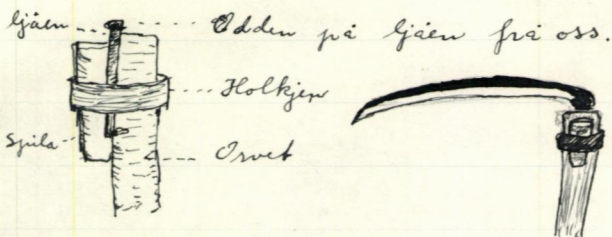 ljåen Odden på ljåen frå oss.
Holkjen
Spila
Orvet